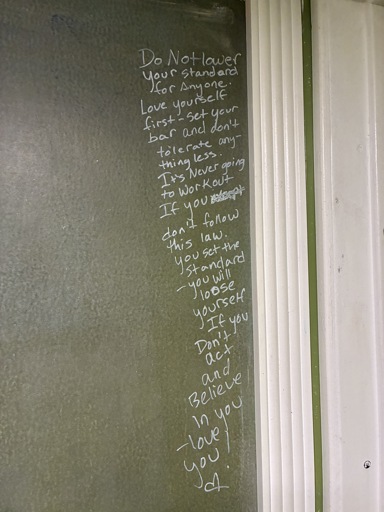 Do Not lower
Your standard
for Anyone.
Love yourself
first - set your
bar and don't
tolerate any-
thing less.
It's Never going
to workout
If you
don't follow
this law.
you set the
standard
- you will
loose
yourself
If you
Don't
act
and
Believe
In you
- love
you!